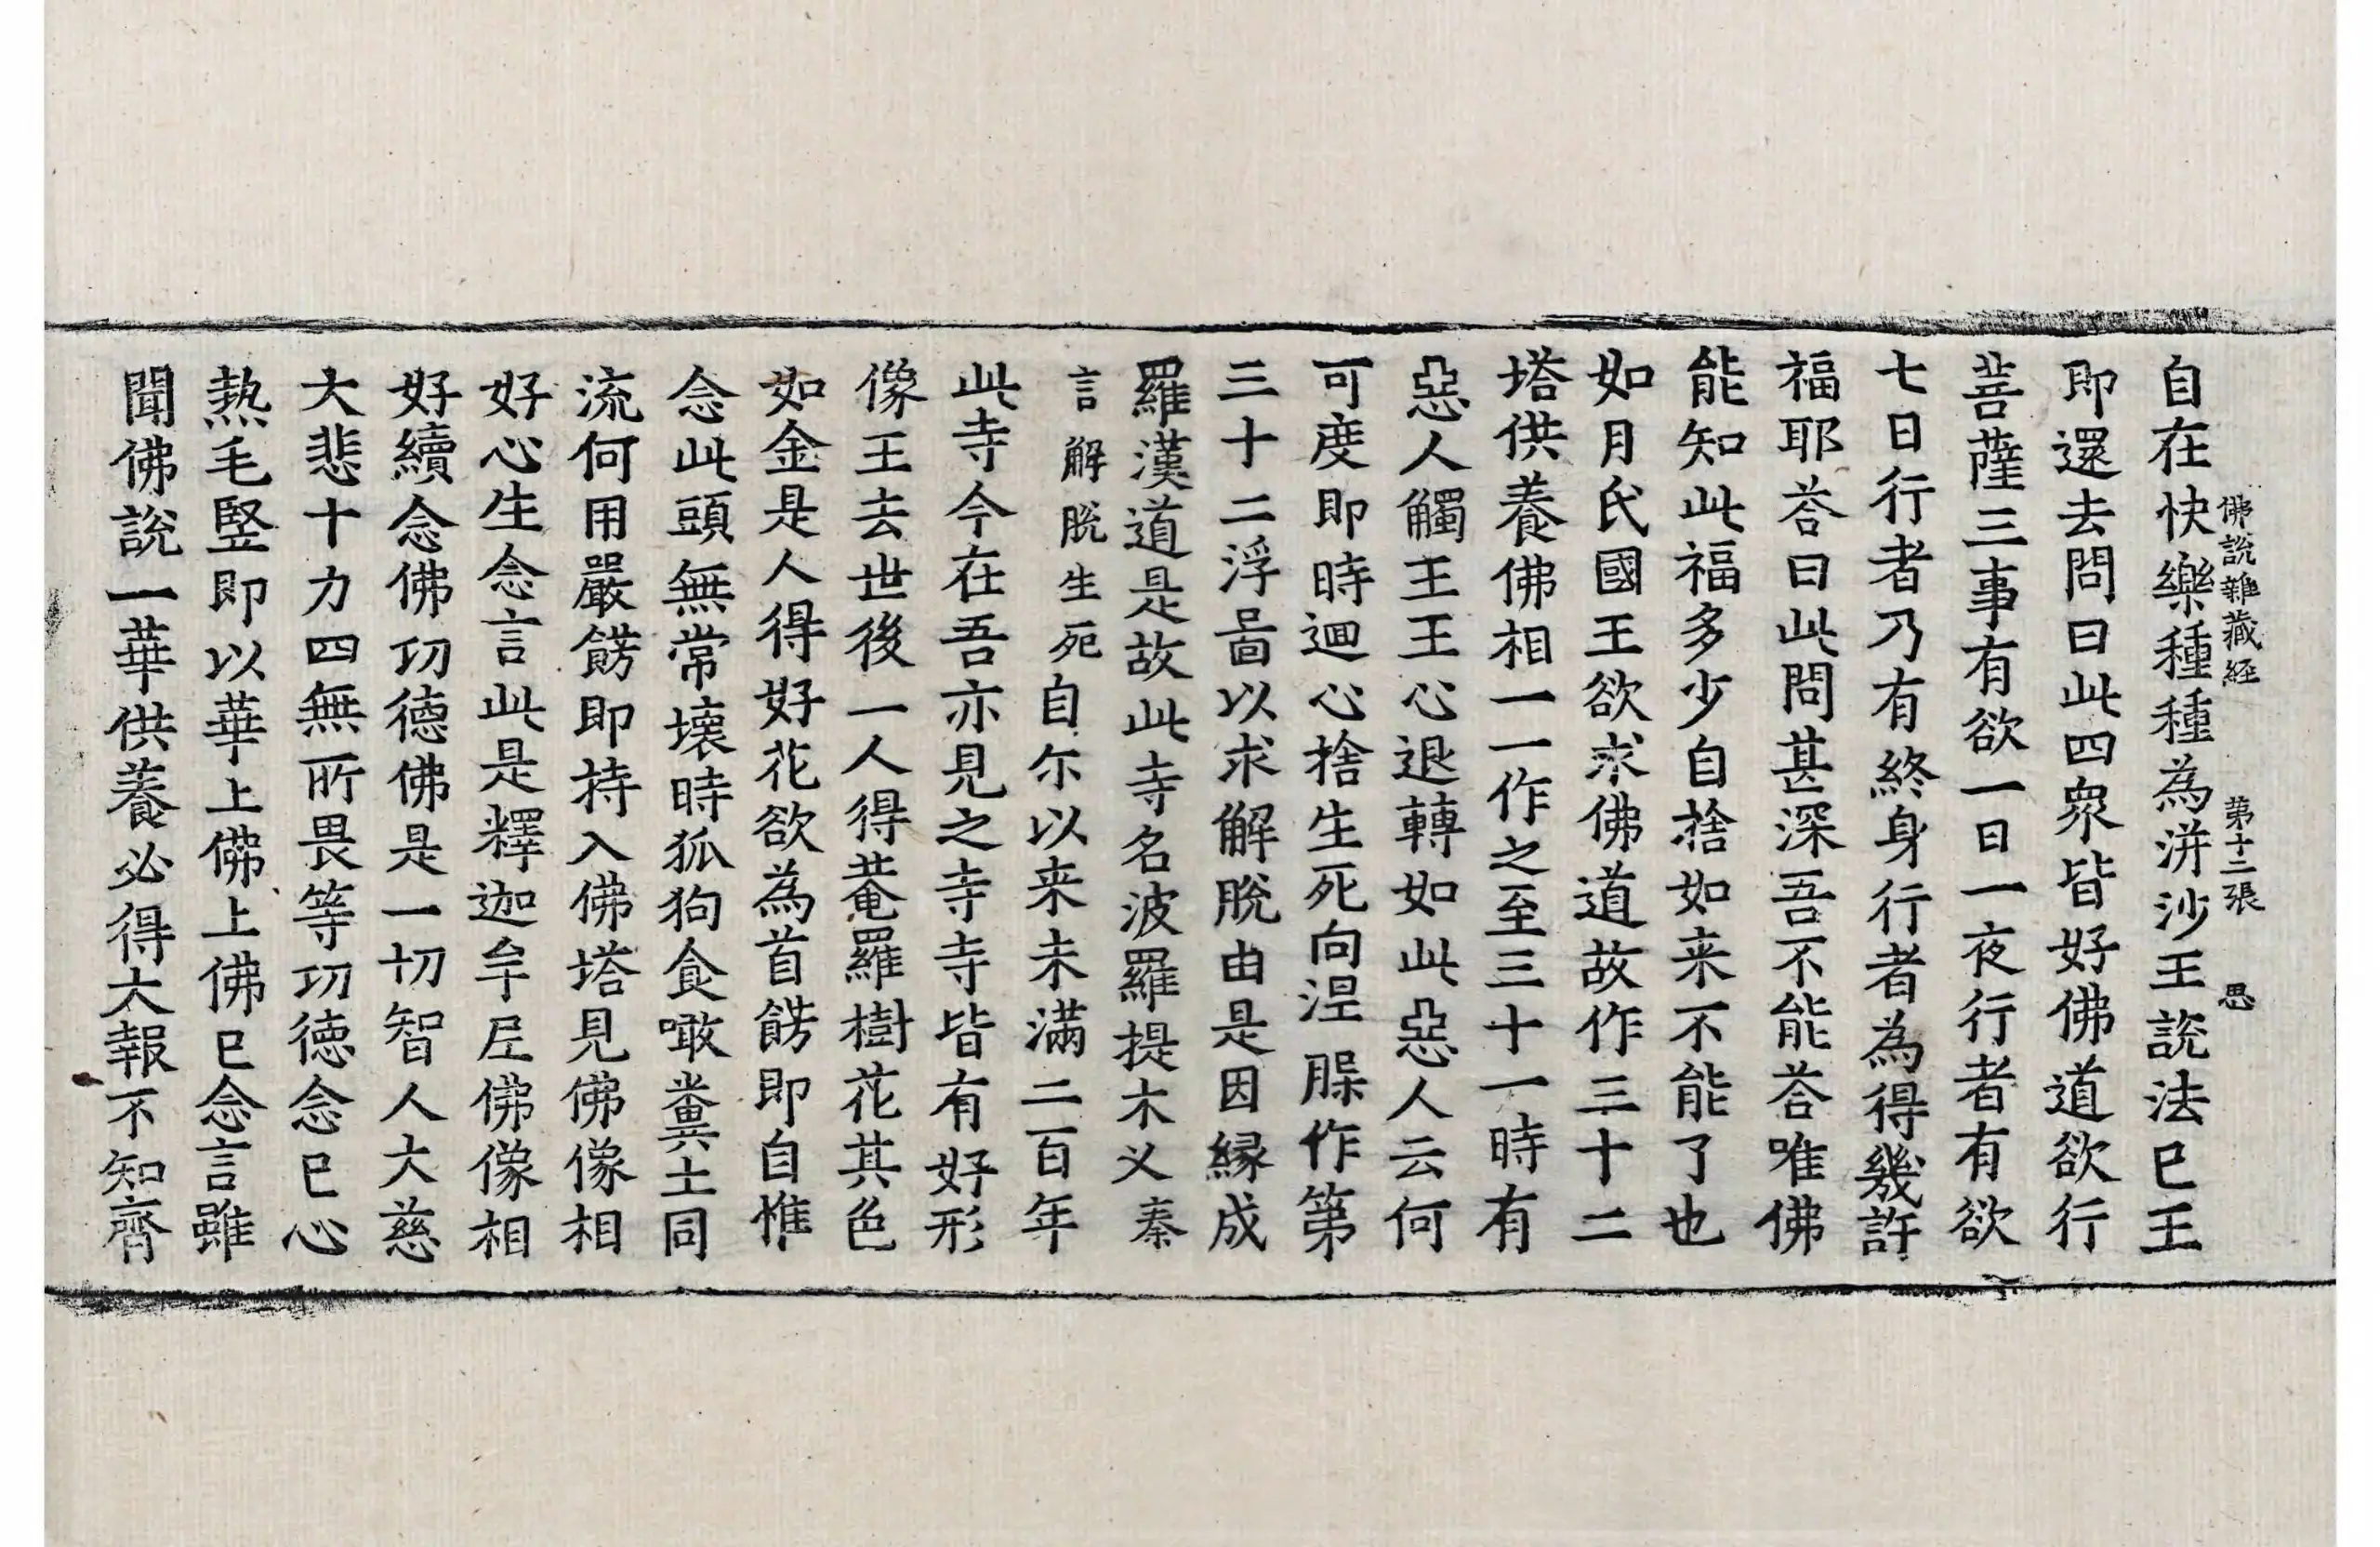 佛說雜藏經 第十二張 思
自在快樂種種為洴沙王說法已王
即還去問曰此四眾皆好佛道欲行
菩薩三事有欲一日一夜行者有欲
七日行者乃有終身行者為得幾許
福耶荅曰此問甚深吾不能荅唯佛
能知此福多少自捨如来不能了也
如月氏國王欲求佛道故作三十二
塔供養佛相一一作之至三十一時有
惡人觸王王心退轉如此惡人云何
可度即時迴心捨生死向涅𣵀作第
三十二浮啚以求解脫由是因緣成
羅漢道是故此寺名波羅提木义秦
言解脫生死自尓以来未滿二百年
此寺今在吾亦見之寺寺皆有好形
像王去世後一人得菴羅樹花其色
如金是人得好花欲為首餝即自惟
念此頭無常壞時狐狗食噉糞土同
流何用嚴餝即持入佛塔見佛像相
好心生念言此是釋迦牟𡰱佛像相
好續念佛功德佛是一切智人大慈
大悲十力四無所畏等功德念已心
熱毛竪即以華上佛上佛已念言雖
聞佛說一華供養必得大報不知齊